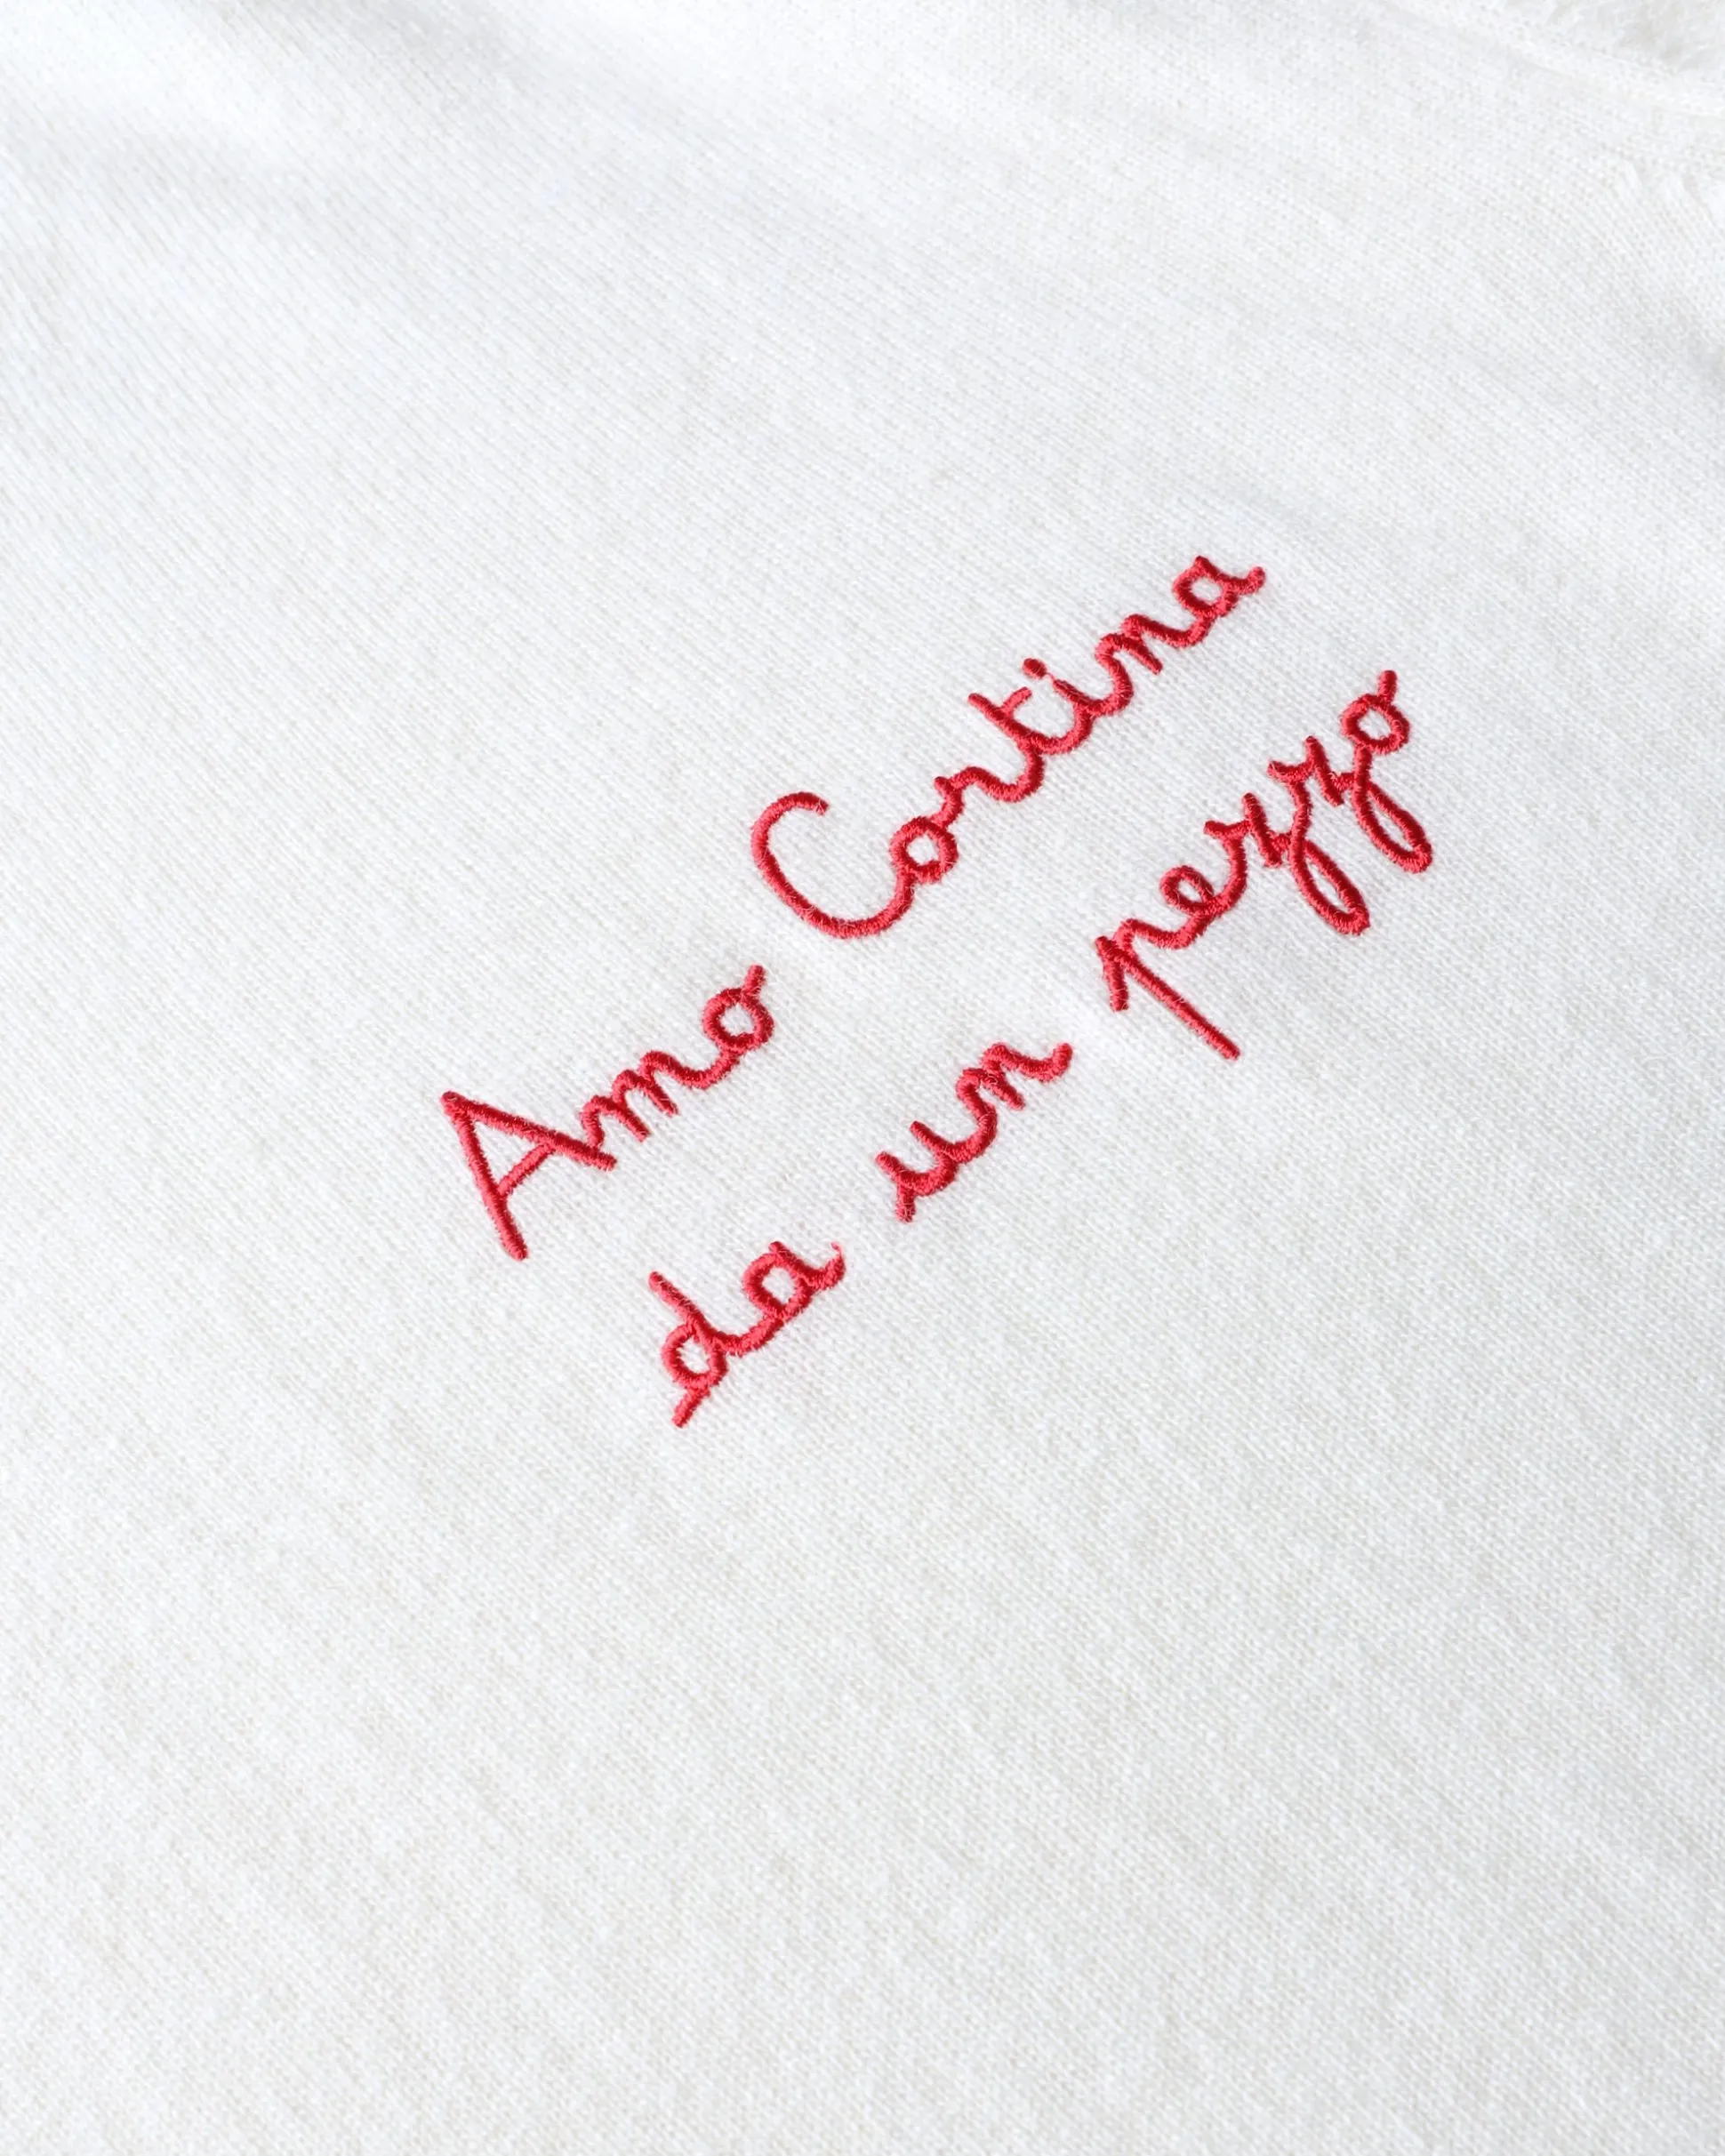 Amo Cortina
da un pezzo